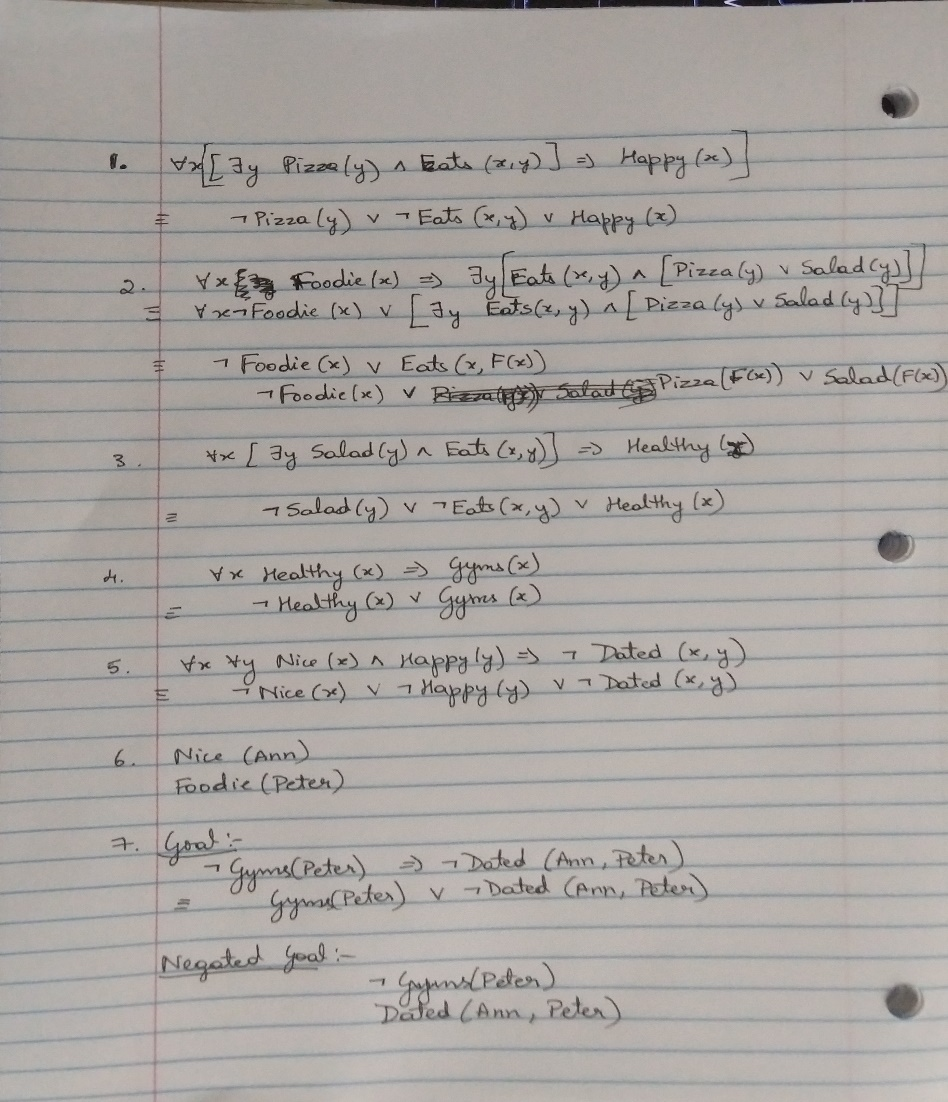 1. ∀x[[∃y Pizza(y) ∧ Eats (x,y)] ⇒ Happy (x)]
≡ ¬Pizza(y) ∨ ¬Eats (x,y) ∨ Happy (x)
2. ∀x Foodie(x) ⇒ ∃y[Eats(x,y) ∧ [Pizza(y) ∨ Salad(y)]]
≡ ∀x¬Foodie (x) ∨ [∃y Eats(x,y) ∧ [Pizza(y) ∨ Salad(y)]]
≡ ¬Foodie(x) ∨ Eats (x, F(x))
¬Foodie(x) ∨ Pizza(F(x)) ∨ Salad(F(x))
3. ∀x [∃y Salad(y) ∧ Eats (x,y)] ⇒ Healthy (x)
≡ ¬Salad(y) ∨ ¬Eats(x,y) ∨ Healthy (x)
4. ∀x Healthy (x) ⇒ Gyms(x)
≡ ¬Healthy(x) ∨ Gyms (x)
5. ∀x ∀y Nice (x) ∧ Happy(y) ⇒ ¬ Dated (x, y)
≡ ¬Nice(x) ∨ ¬Happy(y) ∨ ¬Dated (x,y)
6. Nice (Ann)
Foodie(Peter)
7. Goal:-
¬Gyms(Peter) ⇒ ¬Dated (Ann, Peter)
≡ Gyms(Peter) ∨ ¬Dated (Ann, Peter)
Negated Goal:-
¬Gyms(Peter)
Dated (Ann, Peter)